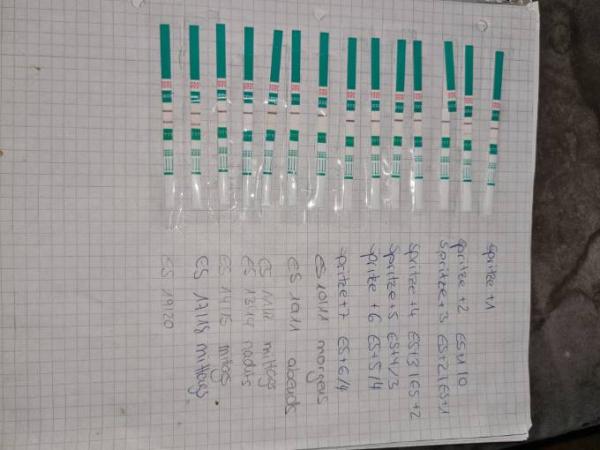 Spritze +1
Spritze +2 ES+1/0
Spritze+3 ES+2/ES+1
Spritze +4 ES+3/ES+2
Spritze+5 ES+4/3
Spritze +6 ES+5/4
Spritze+7 ES+6/4
ES 10/11 morgens
ES 10/11 abends
ES mittags
ES 13/14
ES 14/15 mittags
ES 17/18 mittags
ES 19/20